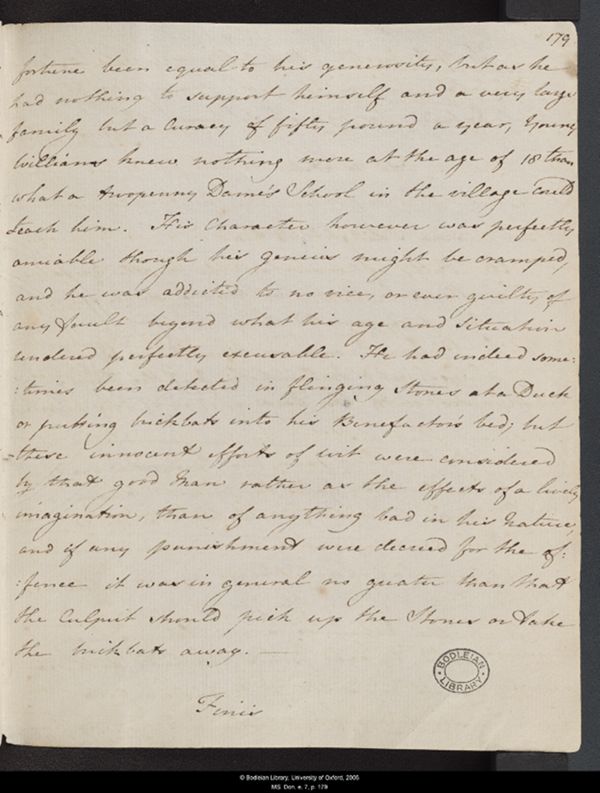 179
fortune been equal to his generosity, but as he
had nothing to support himself and a very large
family but a Curacy of fifty pound a year, Young
Williams knew nothing more at the age of 18 than
what a twopenny Dame's School in the village could
teach him. His Character however was perfectly
amiable though his genius might be cramped,
and he was addicted to no vice, or ever guilty of
any fault beyond what his age and Situation
rendered perfectly excusable. He had indeed some:
:times been detected in flinging Stones at a Duck
or putting brickbats into his Benefactor's bed; but
these innocent efforts of wit were considered
by that good Man rather as the effects of a lively
imagination, than of anything bad in his Nature,
and if any punishment were decreed for the of:
:fence it was in general no greater than that
the Culprit should pick up the Stones or take
the brickbats away. —
Finis
BODLEIAN
LIBRARY
© Bodleian Library, University of Oxford, 2005
MS. Don. e. 7, p. 179